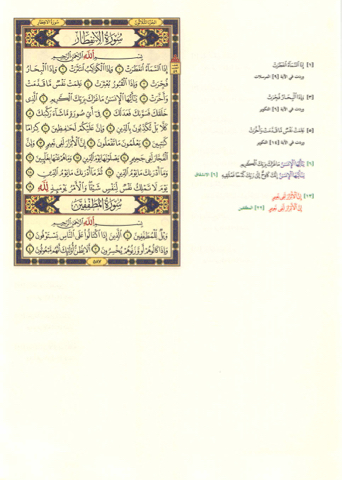 الجزء الثلاثون
سورة الانفطار
سُورَةُ الانفِطَارِ
بِسْمِ ٱللَّهِ ٱلرَّحْمَٰنِ ٱلرَّحِيمِ
إِذَا ٱلسَّمَآءُ ٱنفَطَرَتْ ١ وَإِذَا ٱلْكَوَاكِبُ ٱنتَثَرَتْ ٢ وَإِذَا ٱلْبِحَارُ
فُجِّرَتْ ٣ وَإِذَا ٱلْقُبُورُ بُعْثِرَتْ ٤ عَلِمَتْ نَفْسٌ مَّا قَدَّمَتْ
وَأَخَّرَتْ ٥ يَٰٓأَيُّهَا ٱلْإِنسَٰنُ مَا غَرَّكَ بِرَبِّكَ ٱلْكَرِيمِ ٦ ٱلَّذِى
خَلَقَكَ فَسَوَّىٰكَ فَعَدَلَكَ ٧ فِىٓ أَىِّ صُورَةٍ مَّا شَآءَ رَكَّبَكَ ٨
كَلَّا بَلْ تُكَذِّبُونَ بِٱلدِّينِ ٩ وَإِنَّ عَلَيْكُمْ لَحَٰفِظِينَ ١٠ كِرَامًا
كَٰتِبِينَ ١١ يَعْلَمُونَ مَا تَفْعَلُونَ ١٢ إِنَّ ٱلْأَبْرَارَ لَفِى نَعِيمٍ ١٣ وَإِنَّ
ٱلْفُجَّارَ لَفِى جَحِيمٍ ١٤ يَصْلَوْنَهَا يَوْمَ ٱلدِّينِ ١٥ وَمَا هُمْ عَنْهَا بِغَآئِبِينَ ١٦
وَمَآ أَدْرَىٰكَ مَا يَوْمُ ٱلدِّينِ ١٧ ثُمَّ مَآ أَدْرَىٰكَ مَا يَوْمُ ٱلدِّينِ ١٨
يَوْمَ لَا تَمْلِكُ نَفْسٌ لِّنَفْسٍ شَيْـًٔا وَٱلْأَمْرُ يَوْمَئِذٍ لِّلَّهِ ١٩
سُورَةُ المُطَفِّفِينَ
بِسْمِ ٱللَّهِ ٱلرَّحْمَٰنِ ٱلرَّحِيمِ
وَيْلٌ لِّلْمُطَفِّفِينَ ١ ٱلَّذِينَ إِذَا ٱكْتَالُوا۟ عَلَى ٱلنَّاسِ يَسْتَوْفُونَ ٢
وَإِذَا كَالُوهُمْ أَو وَّزَنُوهُمْ يُخْسِرُونَ ٣ أَلَا يَظُنُّ أُو۟لَٰٓئِكَ أَنَّهُم مَّبْعُوثُونَ ٤
٥٨٧
[١] إِذَا ٱلسَّمَآءُ ٱنفَطَرَتْ
وردت في الآية [٩] المرسلات
[٣] وَإِذَا ٱلْبِحَارُ فُجِّرَتْ
وردت في الآية [٦] التكوير
[٥] عَلِمَتْ نَفْسٌ مَّا قَدَّمَتْ وَأَخَّرَتْ
وردت في الآية [١٤] التكوير
[٦] يَٰٓأَيُّهَا ٱلْإِنسَٰنُ مَا غَرَّكَ بِرَبِّكَ ٱلْكَرِيمِ
يَٰٓأَيُّهَا ٱلْإِنسَٰنُ إِنَّكَ كَادِحٌ إِلَىٰ رَبِّكَ كَدْحًا فَمُلَٰقِيهِ [٦] الانشقاق
[١٣] إِنَّ ٱلْأَبْرَارَ لَفِى نَعِيمٍ
إِنَّ ٱلْأَبْرَارَ لَفِى نَعِيمٍ [٢٢] المطففين